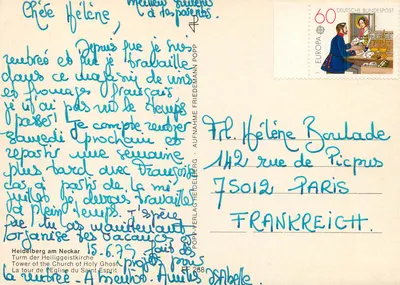 Chère Hélène,
Meilleur souvenir
à tes parents.
Depuis que je suis
rentrée et que je travaille
dans ce magasin de vins
et fromages français,
je n'ai pas vu le temps
passer! Je compte rentrer
samedi prochain et
repartir une semaine
plus tard avec Françoise
car, à partir de la mi
juillet je devrais travailler
à plein temps. J'espère
que tu as maintenant
organisé tes vacances
15.6.79
la rentrée. A bientôt. Amitiés Isabelle
60
DEUTSCHE BUNDESPOST
EUROPA
POPP VERLAG HEIDELBERG - AUFNAHME FRIEDEMANN POPP
Mlle. Hélène Boulade
142 rue de Picpus
75012 PARIS
FRANKREICH.
Heidelberg am Neckar
Turm der Heiliggeistkirche
Tower of the Church of Holy Ghost
La tour de l'Eglise du Saint Esprit